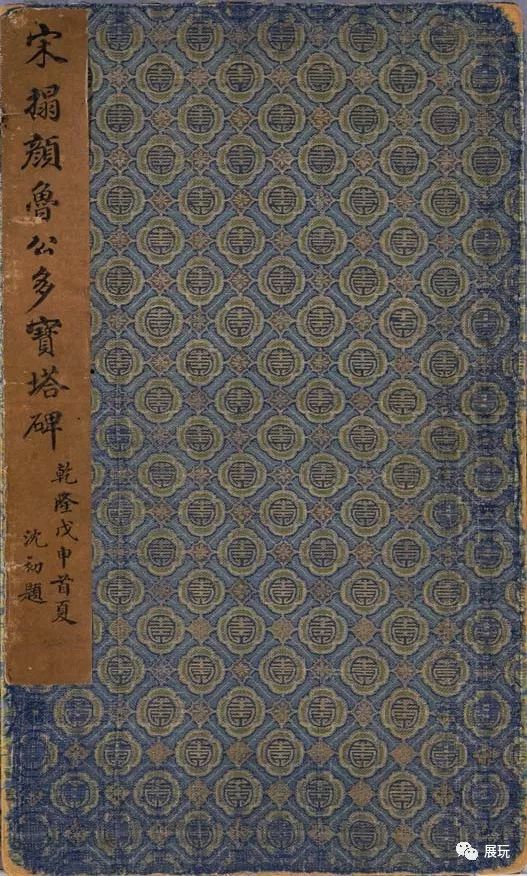 宋搨顏魯公多寶塔碑
乾隆戊申首夏
沈初題
展玩